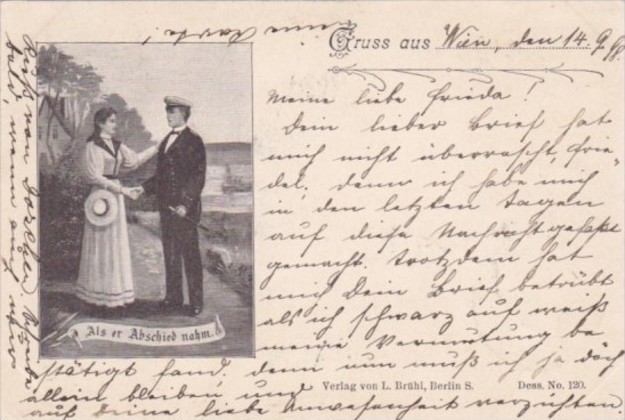 Gruss aus Wien, den 14. 9.
Meine liebe Frieda!
Dein lieber Brief hat
mich nicht überrascht, Frie-
del, denn ich habe mich
in den letzten Tagen
auf diese Nachricht gefaßt
gemacht. Trotzdem hat
mich Dein Brief betrübt
als ich schwarz auf weiß
meine Vermutung be
stätigt fand, denn nun muß ich ja doch
allein bleiben und
auf deine liebe Anwesenheit verzichten
Als er Abschied nahm.
Verlag von L. Brühl, Berlin S. Dess. No. 120.
bald, wenn auch
Karte!